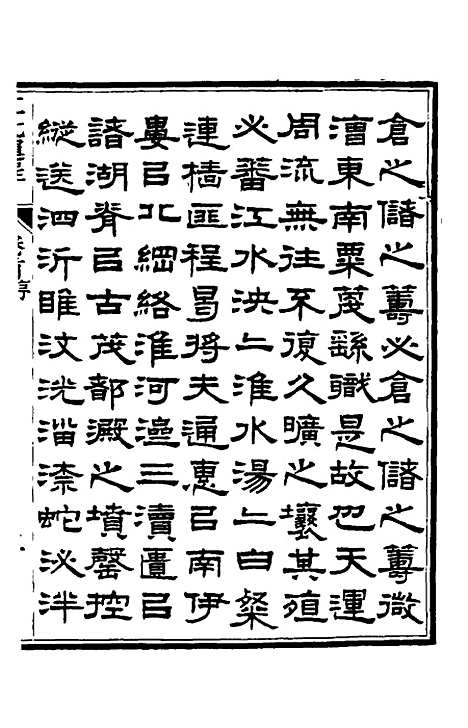 倉之儲之蒪必倉之儲之蒪微
漕東南粟蔑繇職是故也天運
周流無往不復久曠之壤其殖
必蕃江水泱二淮水湯二白粲
連檣匪程曷將夫通惠㠯南伊
婁㠯北綱絡淮河灉三瀆匱㠯
諸湖脊㠯古茂都澱之墳罄控
縱送泗沂睢汶洸淄漆蛇泌泮